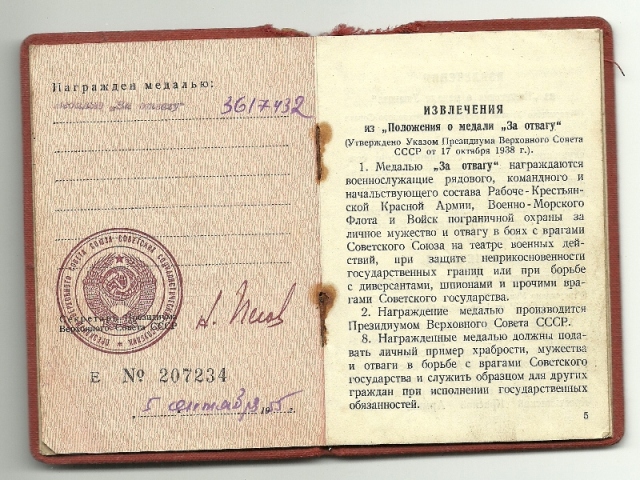 Награжден медалью:
медалью „За отвагу" 3617432
Секретарь Президиума
Верховного Совета СССР
Е № 207234
5 сентября 195
ИЗВЛЕЧЕНИЯ
из „Положения о медали „За отвагу"
(Утверждено Указом Президиума Верховного Совета
СССР от 17 октября 1938 г.).
1. Медалью „За отвагу" награждаются
военнослужащие рядового, командного и
начальствующего состава Рабоче-Крестьян-
ской Красной Армии, Военно-Морского
Флота и Войск пограничной охраны за
личное мужество и отвагу в боях с врагами
Советского Союза на театре военных дей-
ствий, при защите неприкосновенности
государственных границ или при борьбе
с диверсантами, шпионами и прочими вра-
гами Советского государства.
2. Награждение медалью производится
Президиумом Верховного Совета СССР.
8. Награжденные медалью должны пода-
вать личный пример храбрости, мужества
и отваги в борьбе с врагами Советского
государства и служить образцом для других
граждан при исполнении государственных
обязанностей.
5